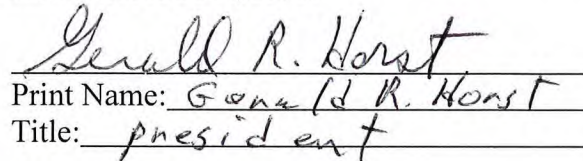 Gerald R. Horst
Print Name: Gerald R. Horst
Title: president